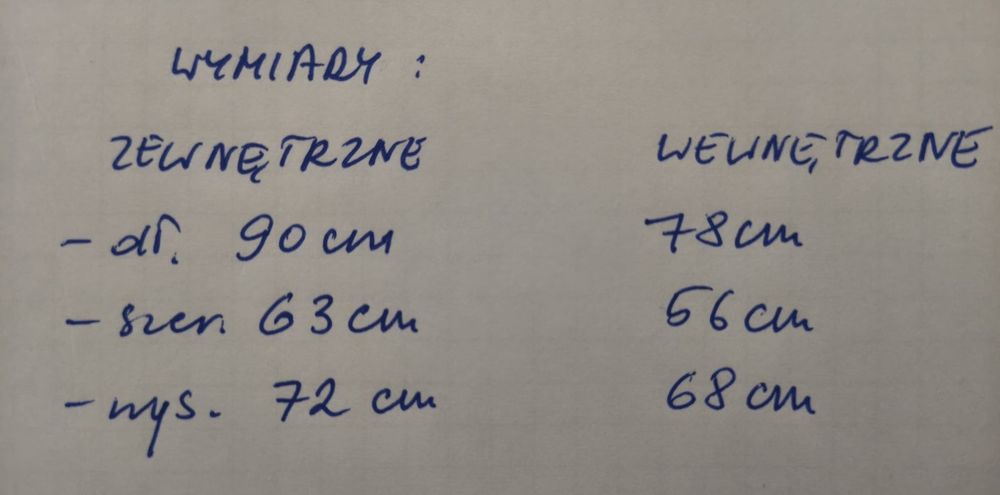 WYMIARY :
ZEWNĘTRZNE WEWNĘTRZNE
- dł. 90 cm 78 cm
- szer. 63 cm 56 cm
- wys. 72 cm 68 cm